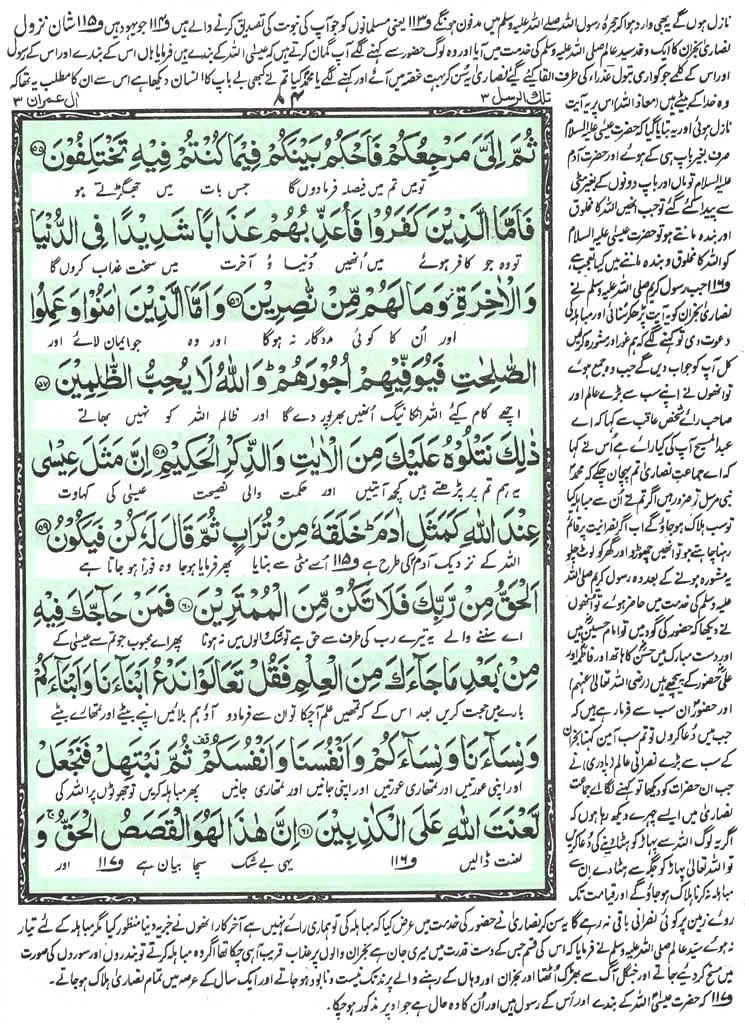 نازل ہوں گے یہ بھی وارد ہوا کہ حجرۂ رسول اللہ صلے اللہ علیہ وسلم میں مدفون ہونگے و۱۱۳ یعنی مسلمانوں کو جو آپ کی نبوت کی تصدیق کرنے والے ہیں و۱۱۴ جو یہود ہیں و۱۱۵ شان نزول
نصاریٰ نجران کا ایک وفد سید عالم صلی اللہ علیہ وسلم کی خدمت میں آیا اور وہ لوگ حضور سے کہنے لگے آپ گمان کرتے ہیں کہ عیسیٰ اللہ کے بندے ہیں فرمایا ہاں اس کے بندے اور اس کے رسول
اور اس کے کلمے جو کواری بتول عذراء کی طرف القا کئے گئے نصاریٰ یہ سن کر بہت غصہ میں آئے اور کہنے لگے یا محمد کیا تم نے کبھی بے باپ کا انسان دیکھا ہے اس سے ان کا مطلب یہ تھا کہ
ال عمران ۳
۸۴
تلک الرسل ۳
ثُمَّ اِلَيَّ مَرْجِعُكُمْ فَاَحْكُمُ بَيْنَكُمْ فِيْمَا كُنْتُمْ فِيْهِ تَخْتَلِفُوْنَ ۵۵
تو میں تم میں فیصلہ فرمادوں گا جس بات میں جھگڑتے ہو
فَاَمَّا الَّذِيْنَ كَفَرُوْا فَاُعَذِّبُهُمْ عَذَابًا شَدِيْدًا فِي الدُّنْيَا
تو وہ جو کافر ہوئے میں اُنھیں دُنیا و آخرت میں سخت عذاب کروں گا
وَالْاٰخِرَةِ وَمَا لَهُمْ مِّنْ نّٰصِرِيْنَ ۵۶ وَاَمَّا الَّذِيْنَ اٰمَنُوْا وَعَمِلُوا
اور اُن کا کوئی مددگار نہ ہوگا اور وہ جو ایمان لائے اور
الصّٰلِحٰتِ فَيُوَفِّيْهِمْ اُجُوْرَهُمْ ؕ وَاللّٰهُ لَا يُحِبُّ الظّٰلِمِيْنَ ۵۷
اچھے کام کیے اللہ انکا نیگ اُنھیں بھرپور دے گا اور ظالم اللہ کو نہیں بھاتے
ذٰلِكَ نَتْلُوْهُ عَلَيْكَ مِنَ الْاٰيٰتِ وَالذِّكْرِ الْحَكِيْمِ ۵۸ اِنَّ مَثَلَ عِيْسٰى
یہ ہم تم پر پڑھتے ہیں کچھ آیتیں اور حکمت والی نصیحت عیسیٰ کی کہاوت
عِنْدَ اللّٰهِ كَمَثَلِ اٰدَمَ ؕ خَلَقَهٗ مِنْ تُرَابٍ ثُمَّ قَالَ لَهٗ كُنْ فَيَكُوْنُ ۵۹
اللہ کے نزدیک آدم کی طرح ہے و۱۱۵ اُسے مٹی سے بنایا پھر فرمایا ہوجا وہ فوراً ہو جاتا ہے
اَلْحَقُّ مِنْ رَّبِّكَ فَلَا تَكُنْ مِّنَ الْمُمْتَرِيْنَ ۶۰ فَمَنْ حَآجَّكَ فِيْهِ
اے سننے والے یہ تیرے رب کی طرف سے حق ہے تو شک والوں میں نہ ہونا پھر اے محبوب جو تم سے عیسیٰ کے
مِنْ بَعْدِ مَا جَآءَكَ مِنَ الْعِلْمِ فَقُلْ تَعَالَوْا نَدْعُ اَبْنَآءَنَا وَاَبْنَآءَكُمْ
بارے میں حجت کریں بعد اس کے کہ تمھیں علم آچکا تو ان سے فرما دو آؤ ہم بلائیں اپنے بیٹے اور تمھارے بیٹے
وَنِسَآءَنَا وَنِسَآءَكُمْ وَاَنْفُسَنَا وَاَنْفُسَكُمْ ثُمَّ نَبْتَهِلْ فَنَجْعَلْ
اور اپنی عورتیں اور تمھاری عورتیں اور اپنی جانیں اور تمھاری جانیں پھر مباہلہ کریں تو جھوٹوں پر اللہ کی
لَّعْنَتَ اللّٰهِ عَلَى الْكٰذِبِيْنَ ۶۱ اِنَّ هٰذَا لَهُوَ الْقَصَصُ الْحَقُّ ۚ وَ
لعنت ڈالیں و۱۱۶ یہی بے شک سچا بیان ہے و۱۱۷ اور
وہ خدا کے بیٹے ہیں (معاذ اللہ) اس پر یہ آیت
نازل ہوئی اور یہ بتایا گیا کہ حضرت عیسیٰ علیہ السلام
صرف بغیر باپ ہی کے ہوئے اور حضرت آدم
علیہ السلام تو ماں اور باپ دونوں کے بغیر مٹی
سے پیدا کئے گئے تو جب انھیں اللہ کا مخلوق
اور بندہ مانتے ہو تو حضرت عیسیٰ علیہ السلام
کو اللہ کا مخلوق و بندہ ماننے میں کیا تعجب ہے
و۱۱۶ جب رسول کریم صلی اللہ علیہ وسلم نے
نصاریٰ نجران کو یہ آیت پڑھ کر سنائی اور مباہلہ کی
دعوت دی تو کہنے لگے کہ ہم غور اور مشورہ کرلیں
کل آپ کو جواب دیں گے جب وہ جمع ہوئے
تو انھوں نے اپنے سب سے بڑے عالم اور
صاحب رائے شخص عاقب سے کہا کہ اے
عبد المسیح آپ کی کیا رائے ہے اُس نے کہا
کہ اے جماعت نصاریٰ تم پہچان چکے کہ محمد
نبی مرسل تو ضرور ہیں اگر تم نے اُن سے مباہلہ کیا
تو سب ہلاک ہو جاؤ گے اب اگر نصرانیت پر قائم
رہنا چاہتے ہو تو انھیں چھوڑو اور گھر کو لوٹ چلو
یہ مشورہ ہونے کے بعد وہ رسول کریم صلی اللہ
علیہ وسلم کی خدمت میں حاضر ہوئے تو انھوں
نے دیکھا کہ حضور کی گود میں تو امام حسین ہیں
اور دست مبارک میں حسن کا ہاتھ اور فاطمہ اور
علی حضور کے پیچھے ہیں (رضی اللہ تعالیٰ عنہم)
اور حضور ان سب سے فرما رہے ہیں کہ
جب میں دُعا کروں تو تم سب آمین کہنا نجران
کے سب سے بڑے نصرانی عالم (پادری) نے
جب ان حضرات کو دیکھا تو کہنے لگا اے جماعت
نصاریٰ میں ایسے چہرے دیکھ رہا ہوں کہ
اگر یہ لوگ اللہ سے پہاڑ کو ہٹا دینے کی دُعا کریں
تو اللہ تعالیٰ پہاڑ کو جگہ سے ہٹا دے ان سے
مباہلہ نہ کرنا ہلاک ہو جاؤ گے اور قیامت تک
روئے زمین پر کوئی نصرانی باقی نہ رہے گا یہ سن کر نصاریٰ نے حضور کی خدمت میں عرض کیا کہ مباہلہ کی تو ہماری رائے نہیں ہے آخر کار انھوں نے جزیہ دینا منظور کیا مگر مباہلہ کے لئے تیار
نہ ہوئے سید عالم صلی اللہ علیہ وسلم نے فرمایا کہ اس کی قسم جس کے دست قدرت میں میری جان ہے نجران والوں پر عذاب قریب آہی چکا تھا اگر وہ مباہلہ کرتے تو بندروں اور سوروں کی صورت
میں مسخ کر دیے جاتے اور جنگل آگ سے بھڑک اُٹھتا اور نجران اور وہاں کے رہنے والے پرند تک نیست و نابود ہو جاتے اور ایک سال کے عرصہ میں تمام نصاریٰ ہلاک ہو جاتے۔
و۱۱۷ کہ حضرت عیسیٰ اللہ کے بندے اور اُس کے رسول ہیں اور اُن کا وہ حال ہے جو اوپر مذکور ہوچکا۔